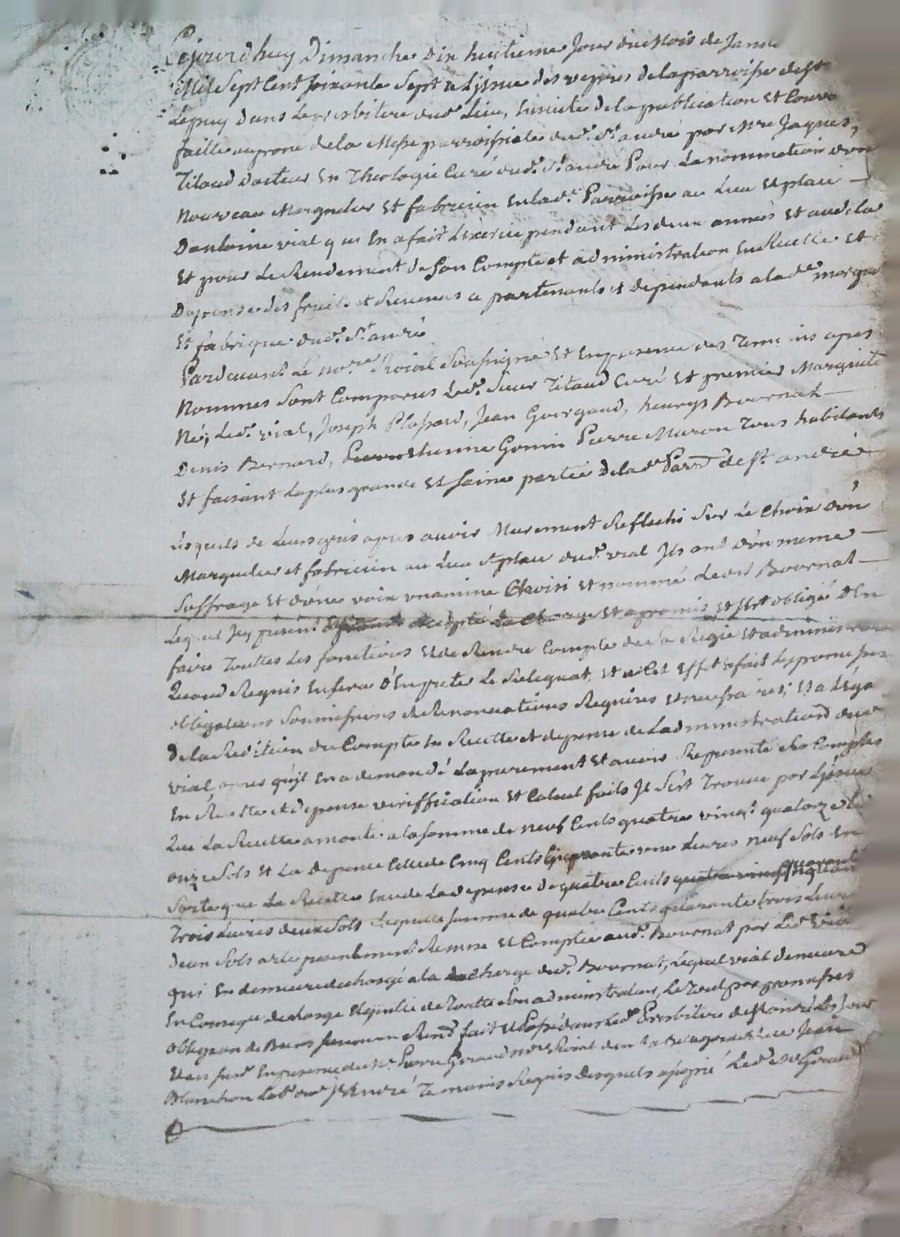 Cejourdhuy Dimanche dix huitieme Jour du Mois de Janv
Mil Sept Cent soixante Sept a L'jssue des vepres de la parroisse de st
Lepuy dans Le presbitere dud. Lieu, Ensuite de la publication Et
faitte au prone de la Messe parroissiale dud. St. andré par Mre Jaques
Titaud Docteur En Theologie Curé dud. St. andré Pour La nommination d'un
Nouveau Marguelier Et fabricien En lad. Parroisse au Lieu Et place
D'antoine vial qui En a fait L'exercice pendant Les deux années Et audela
Et pour Le Rendement de son Compte et administration En Recette Et
Depense des fruits et Revenus apartenants et dependants a lade. margue
Et fabrique dud. St. andré
Pardevant Le nore. Roial Soussigné Et En presence des Temoins apres
Nommés Sont Comparus Led. Sieur Titaud Curé Et premier Marguili
Né, Led. vial, Joseph Plassard, Jean Gourgaud, henrys Bournat
Denis Bernard, Etienne Gonin Pierre Muron Tous habitants
Et faisant La plus grande Et Saine partie de lad. Parr. de St. andré
Lesquels de Leurs grés apres avoir Murement Reflechi Sur Le Choix d'un
Marguelier et fabricien au Lieu Et place dud. vial Ils ont d'un meme
Suffrage Et d'une voix unanime Choisi Et nommé Ledit Bournat
Lequel Jcy present accepté La Charge Et a promis Et s'est obligé d'En
faire Touttes Les fonctions Et de Rendre Compte de sa Regie Et administra
Quand Requis En sera D'En preter Le Reliquat, Et a Cet Effet a fait Les promesses
obligations Soumissions Et Renonciations Requises Et necessaires; Et a L'Egar
de la Reddition du Compte En Recette et depense de L'administration dud.
vial, apres qu'il En a demandé L'apurement Et avoir Representé Ses Comptes
En Recette et depense veriffication Et Calcul faits Il s'est Trouvé par L'jssue
Que La Recette a monté a la somme de neuf Cents quatre vingt quatorze Li
onze Sols Et La depense Celle de Cinq Cents Cinquante une Livres neuf Sols En
Sorte que La Recette Excede La depense de quatre Cents quarante
Trois Livres deux Sols Laquelle somme de quatre Cents quarante trois Livres
deux Sols a Ete presentement Remise Et Comptée aud. Bournat par Led. vial
qui En demeure dechargé a la Charge dud. Bournat, Lequel vial demeure
En Conseq. dechargé Et quitte de Toutte Son administration, Le Tout par promesses
obligaon de Biens fait Et Passé dans Led. Presbitere de St andré Les Jour
Et an Susd. En presence de Pierre Giraud Jean
Blanchon St André Temoins Requis Desquels a signé Led. Giraud